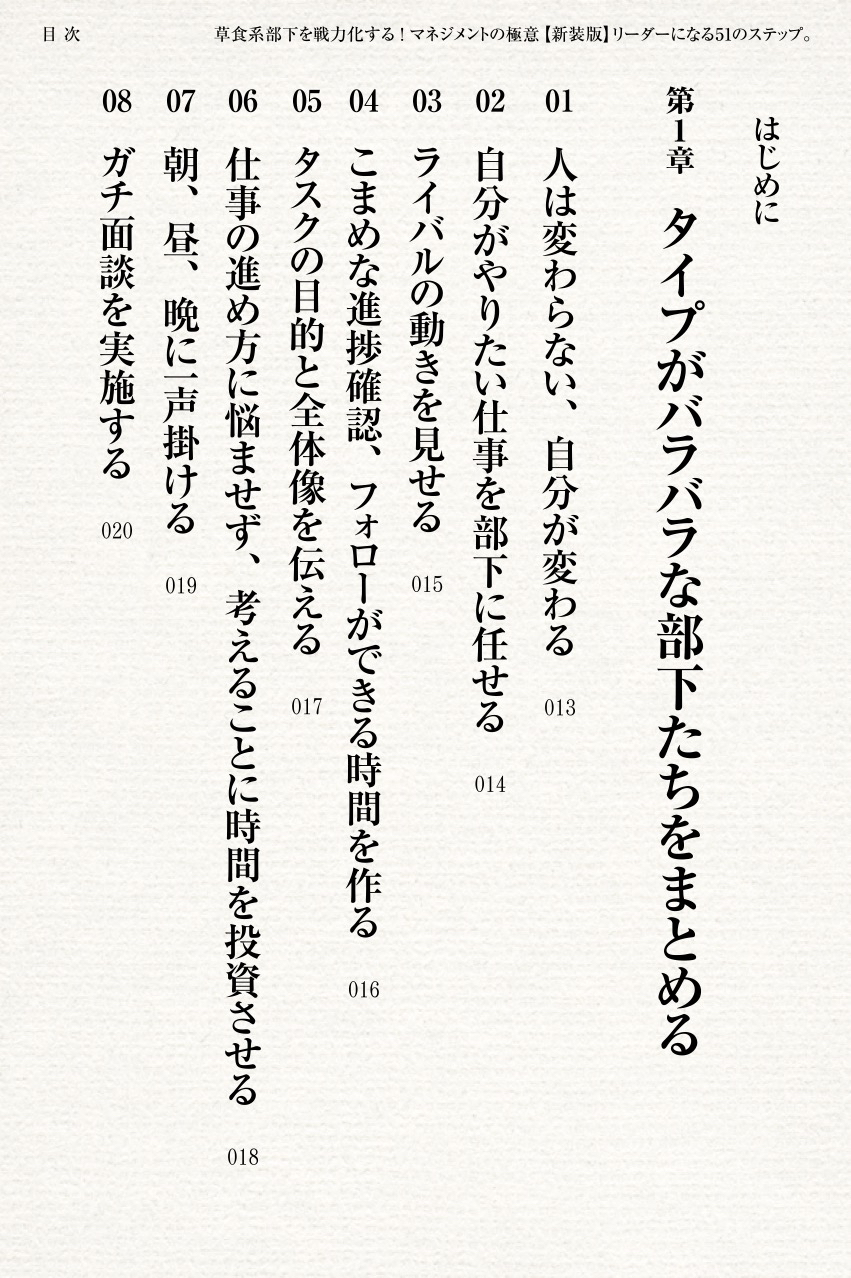 目次
草食系部下を戦力化する！マネジメントの極意【新装版】リーダーになる51のステップ。
はじめに
第1章 タイプがバラバラな部下たちをまとめる
01 人は変わらない、自分が変わる 013
02 自分がやりたい仕事を部下に任せる 014
03 ライバルの動きを見せる 015
04 こまめな進捗確認、フォローができる時間を作る 016
05 タスクの目的と全体像を伝える 017
06 仕事の進め方に悩ませず、考えることに時間を投資させる 018
07 朝、昼、晩に一声掛ける 019
08 ガチ面談を実施する 020